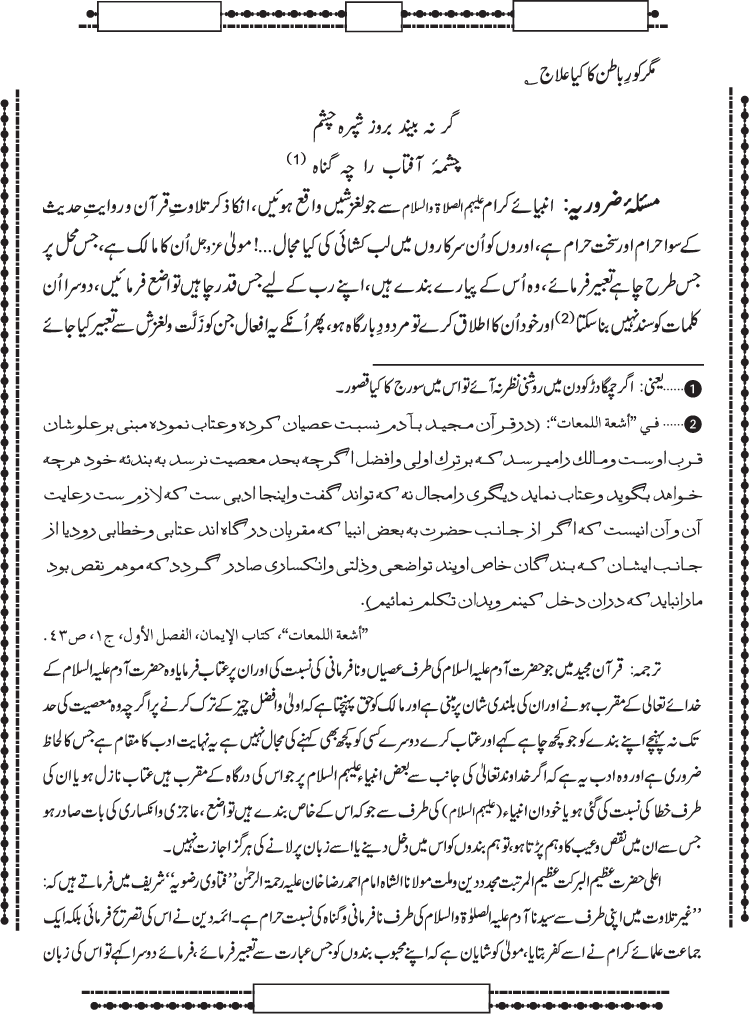 مگر کورِ باطن کا کیا علاج ؂
گر نہ بیند بروز شپرہ چشم
چشمۂ آفتاب را چہ گناہ (1)
مسئلۂ ضروریہ: انبیائے کرام علیہم الصلاۃ والسلام سے جو لغزشیں واقع ہوئیں، انکا ذکر تلاوتِ قرآن و روایتِ حدیث
کے سوا حرام اور سخت حرام ہے، اوروں کو اُن سرکاروں میں لب کشائی کی کیا مجال...! مولیٰ عزوجل اُن کا مالک ہے، جس محل پر
جس طرح چاہے تعبیر فرمائے، وہ اُس کے پیارے بندے ہیں، اپنے رب کے لیے جس قدر چاہیں تواضع فرمائیں، دوسرا اُن
کلمات کو سند نہیں بنا سکتا (2) اور خود اُن کا اطلاق کرے تو مردودِ بارگاہ ہو، پھر اُنکے یہ افعال جن کو زَلَّت و لغزش سے تعبیر کیا جائے
1 ......یعنی: اگر چمگادڑ کو دن میں روشنی نظر نہ آئے تو اس میں سورج کا کیا قصور۔
2 ...... في ”أشعة اللمعات“: (درقرآن مجید بآدم نسبت عصیان کرده وعتاب نموده مبنی بر علوشان
قرب اوست ومالك رامیرسد که بر ترك اولی وافضل اگرچه بحد معصیت نرسد به بندئه خود هرچه
خواهد بگوید وعتاب نماید دیگری رامجال نه که تواند گفت واینجا ادبی ست که لازم ست رعایت
آن وآن اینست که اگر از جانب حضرت به بعض انبیا که مقربان درگاه اند عتابی وخطابی رودیا از
جانب ایشان که بندگان خاص اویند تواضعی وذلتی وانکساری صادر گردد که موهم نقص بود
مارانباید که دران دخل کنیم وبدان تکلم نمائیم).
”أشعة اللمعات“، كتاب الإيمان، الفصل الأول، ج١، ص٤٣.
ترجمہ: قرآن مجید میں جو حضرت آدم علیہ السلام کی طرف عصیاں و نافرمانی کی نسبت کی اور ان پر عتاب فرمایا وہ حضرت آدم علیہ السلام کے
خدائے تعالی کے مقرب ہونے اور ان کی بلندی شان پر مبنی ہے اور مالک کو حق پہنچتا ہے کہ اولیٰ و افضل چیز کے ترک کرنے پر اگرچہ وہ معصیت کی حد
تک نہ پہنچے اپنے بندے کو جو کچھ چاہے کہے اور عتاب کرے دوسرے کسی کو کچھ بھی کہنے کی مجال نہیں ہے یہ نہایت ادب کا مقام ہے جس کا لحاظ
ضروری ہے اور وہ ادب یہ ہے کہ اگر خداوند تعالیٰ کی جانب سے بعض انبیاء علیہم السلام پر جو اس کی درگاہ کے مقرب ہیں عتاب نازل ہو یا ان کی
طرف خطا کی نسبت کی گئی ہو یا خود ان انبیاء (علیہم السلام) کی طرف سے جو کہ اس کے خاص بندے ہیں تواضع، عاجزی و انکساری کی بات صادر ہو
جس سے ان میں نقص و عیب کا وہم پڑتا ہو، تو ہم بندوں کو اس میں دخل دینے یا اسے زبان پر لانے کی ہرگز اجازت نہیں۔
اعلی حضرت عظیم البرکت عظیم المرتبت مجدد دین و ملت مولانا الشاہ امام احمد رضا خان علیہ رحمۃ الرحمٰن ”فتاوی رضویہ“ شریف میں فرماتے ہیں کہ:
”غیر تلاوت میں اپنی طرف سے سیدنا آدم علیہ الصلوٰۃ والسلام کی طرف نافرمانی و گناہ کی نسبت حرام ہے۔ ائمہ دین نے اس کی تصریح فرمائی بلکہ ایک
جماعت علمائے کرام نے اسے کفر بتایا، مولیٰ کو شایان ہے کہ اپنے محبوب بندوں کو جس عبارت سے تعبیر فرمائے، فرمائے دوسرا کہے تو اس کی زبان